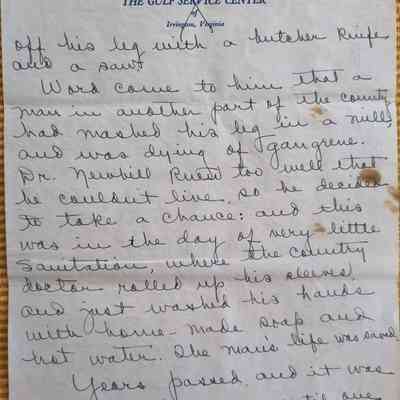 THE GULF SERVICE CENTER
Irvington, Virginia
off his leg with a butcher knife
and a saw!
Word came to him that a
man in another part of the county
had mashed his leg in a mill,
and was dying of gangrene.
Dr. Newbill knew too well that
he couldn't live, so he decided
to take a chance; and this
was in the day of very little
sanitation, where the country
doctor rolled up his sleeves,
and just washed his hands
with home-made soap and
hot water. The man's life was saved.
Years passed, and it was
until one